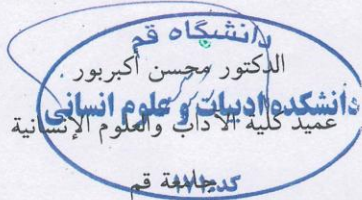 دانشگاه قم
الدكتور محسن أكبربور
دانشکده ادبیات و علوم انسانی
عميد كلية الآداب والعلوم الإنسانية
جامعة قم